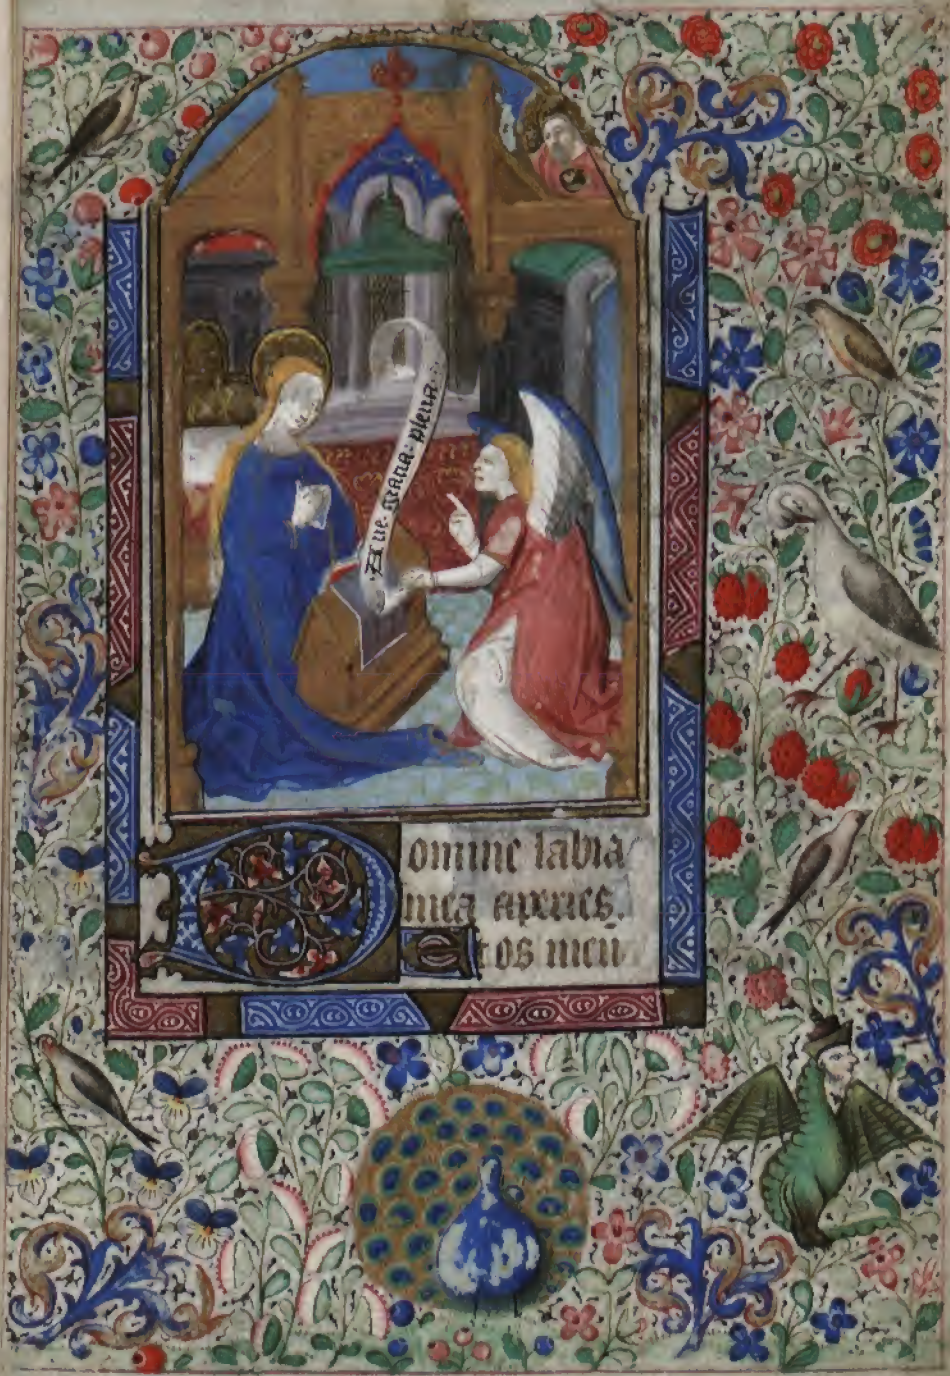 Aue gracia plena
Domine labia
mea aperies.
Et os meu